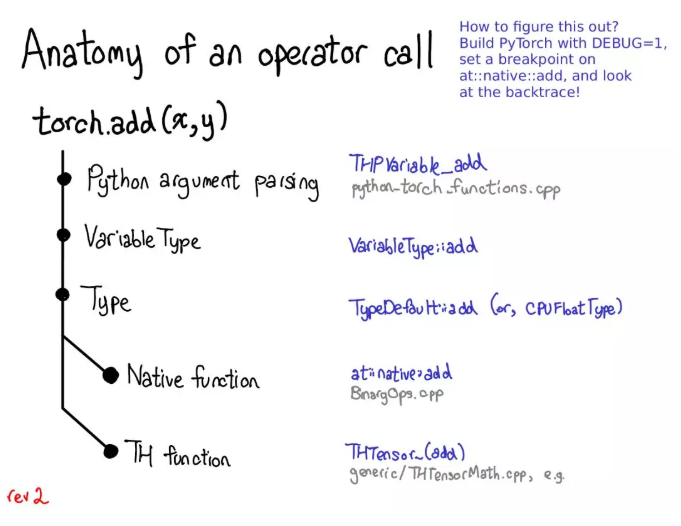 Anatomy of an operator call
How to figure this out?
Build PyTorch with DEBUG=1,
set a breakpoint on
at::native::add, and look
at the backtrace!
torch.add(x,y)
Python argument parsing
THPVariable_add
python_torch_functions.cpp
VariableType
VariableType::add
Type
TypeDefault::add (or, CPUFloatType)
Native function
at::native::add
BinaryOps.cpp
TH function
THTensor_(add)
generic/THTensorMath.cpp, e.g.
rev 2